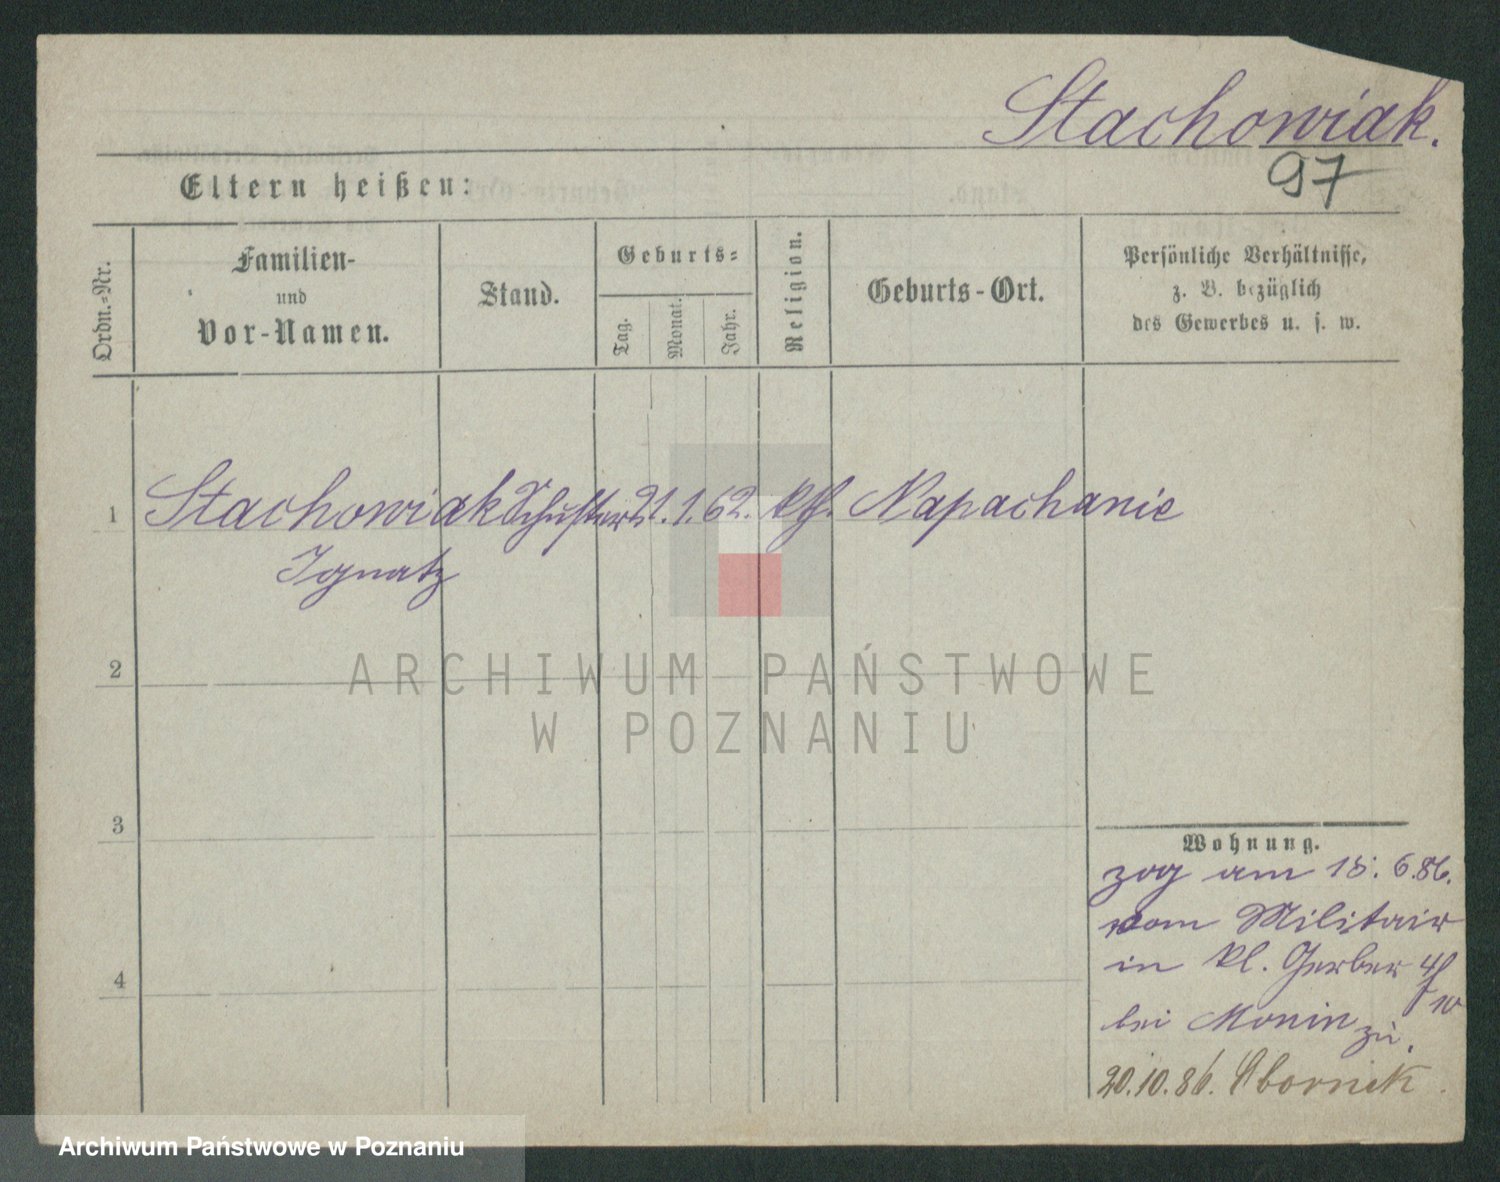 Stachowiak.
97
Eltern heißen:
Ordn.-Nr.
Familien-
und
Vor-Namen.
Stand.
Geburts-
Tag.
Monat.
Jahr.
Religion.
Geburts-Ort.
Persönliche Verhältnisse,
z. B. bezüglich
des Gewerbes u. s. w.
1 Stachowiak Schuster 21.1.62. kth. Napachanie
Ignatz
2
3
4
Wohnung.
zog am 18.6.86.
vom Militair
in kl. Gerber 4/10
bei Monin zu.
20.10.86. Obornik.
ARCHIWUM PAŃSTWOWE
W POZNANIU
Archiwum Państwowe w Poznaniu